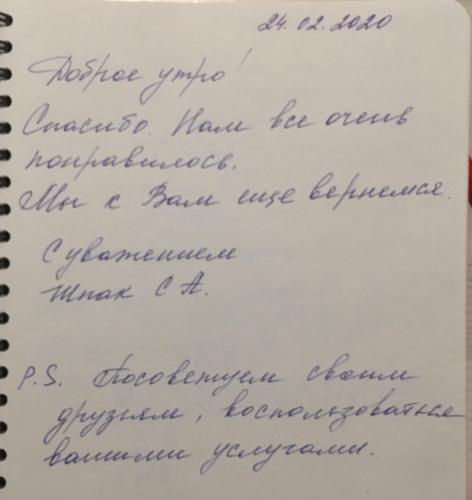 24.02.2020
Доброе утро!
Спасибо. Нам все очень
понравилось.
Мы к Вам еще вернемся.
С уважением
Шпак С.А.
P.S. Посоветуем своим
друзьям, воспользоваться
вашими услугами.